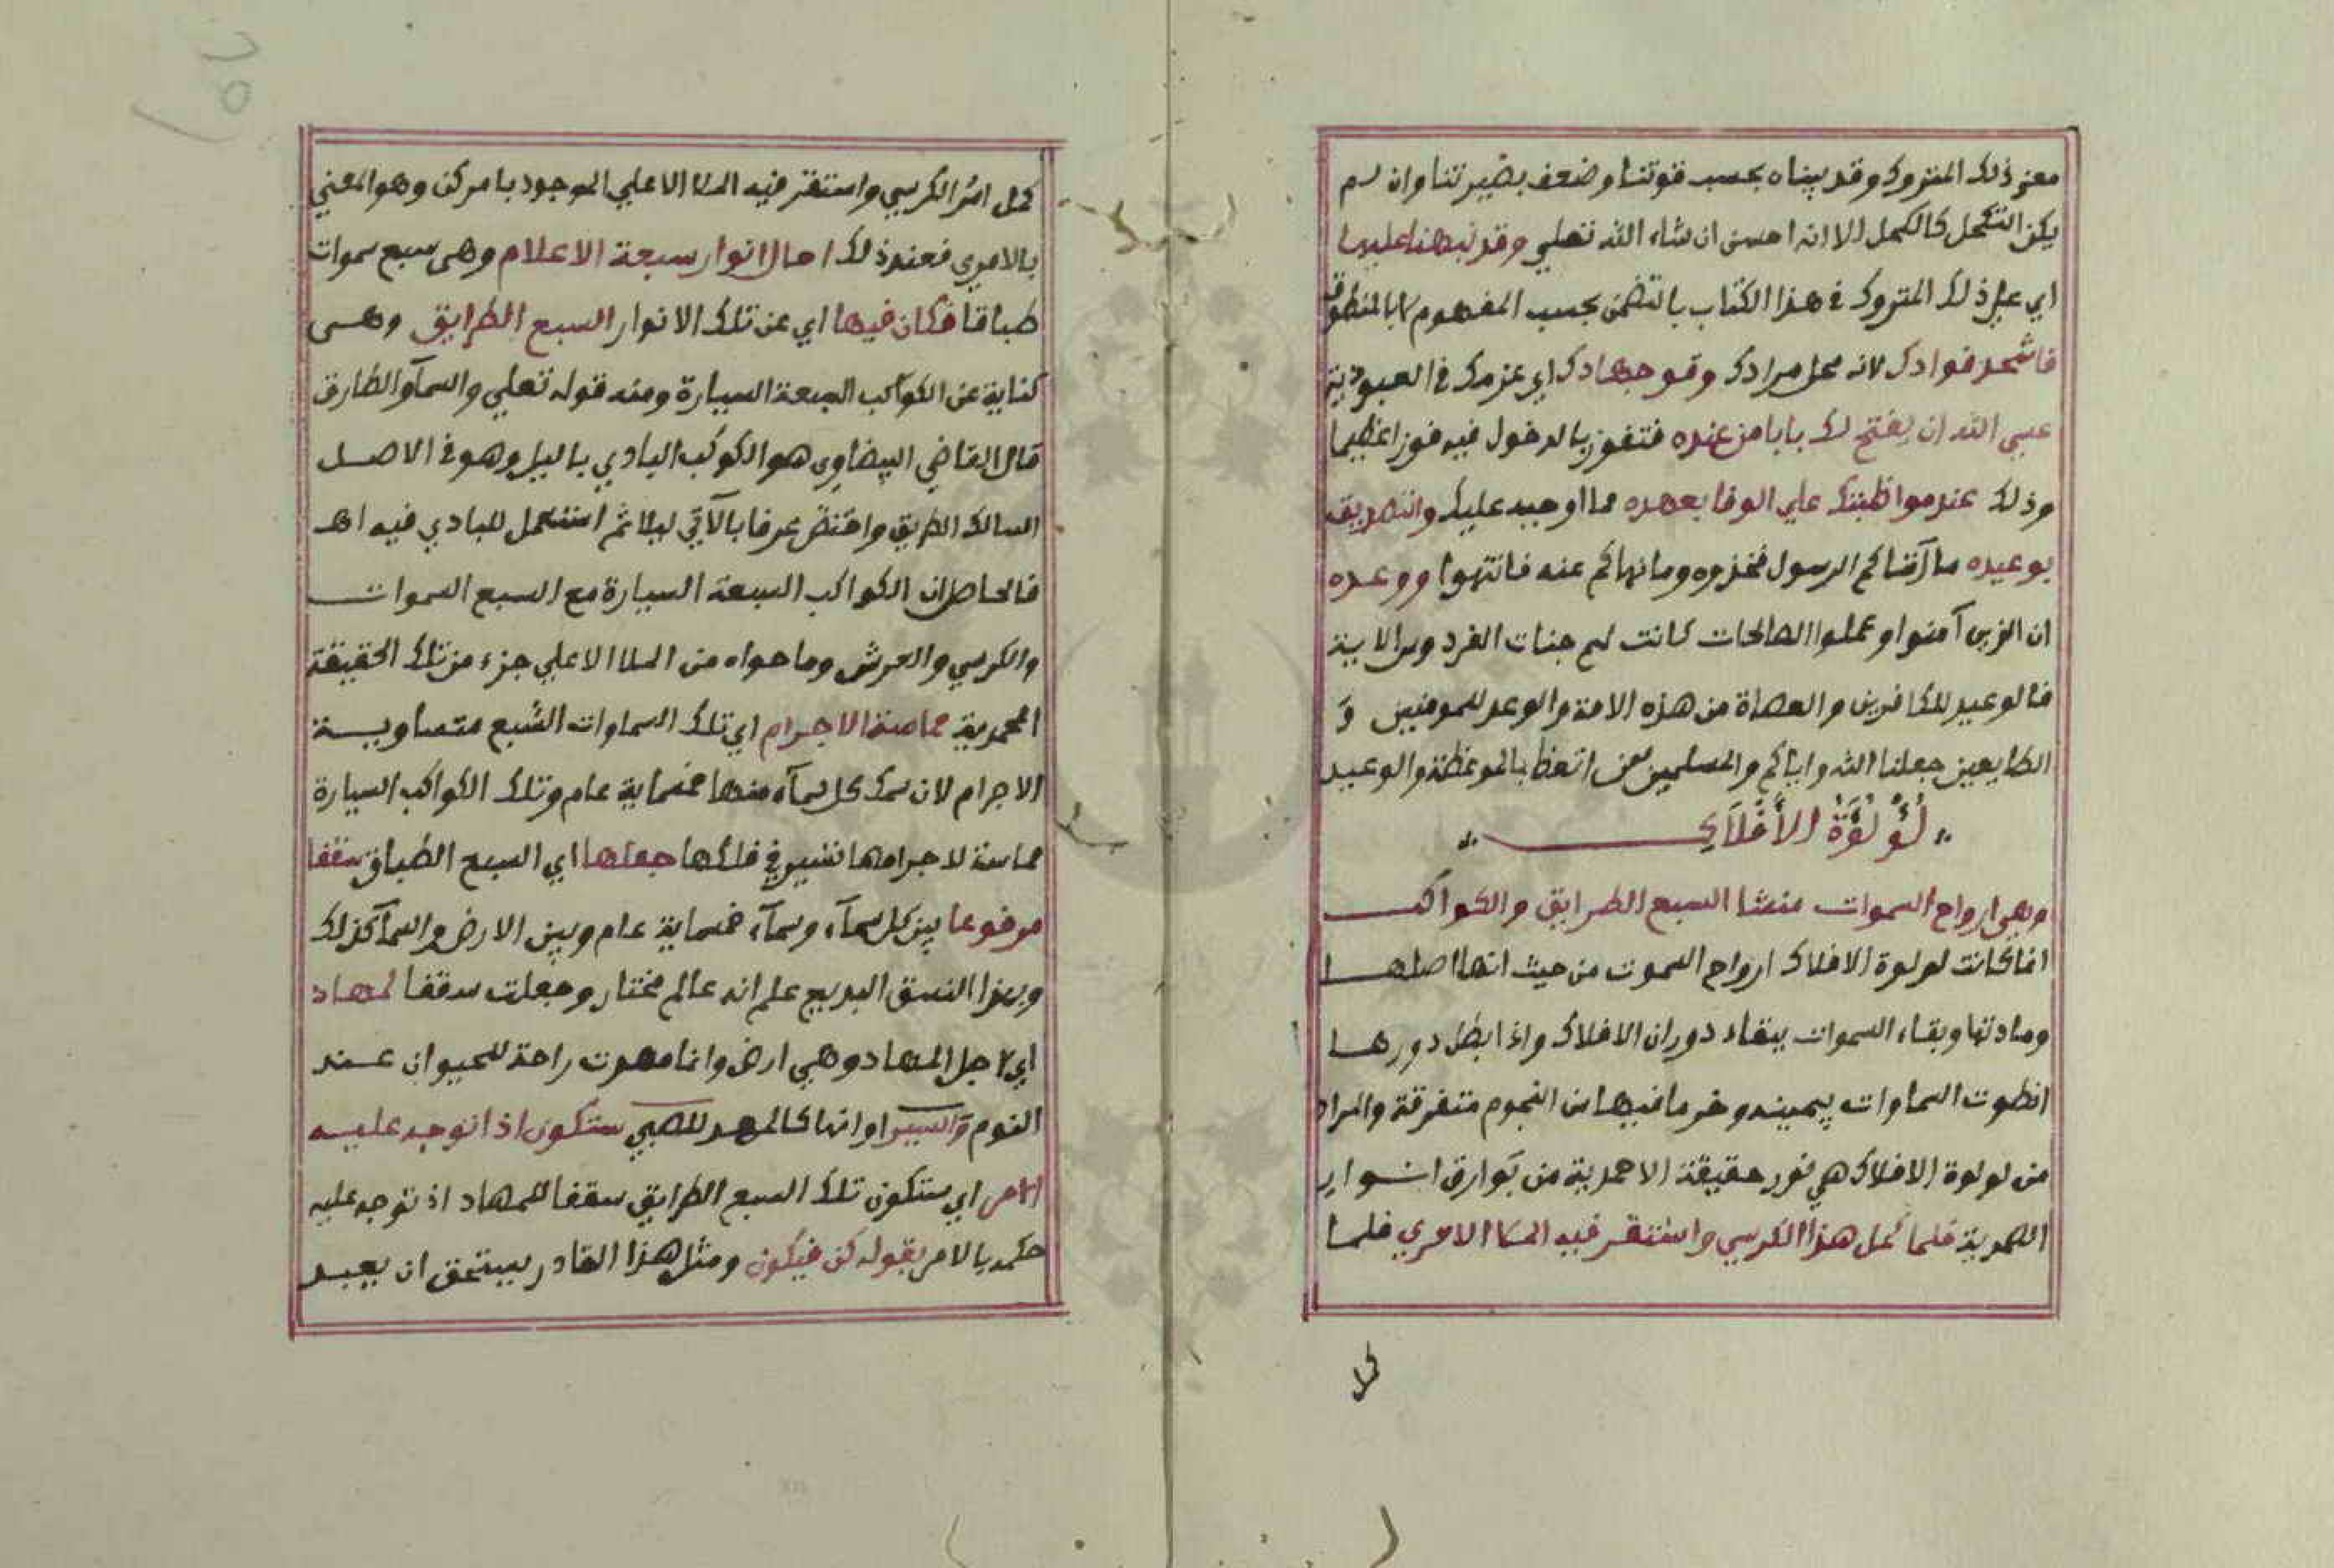 معنى ذلك المتروك وقد بيناه بحسب قوتنا وضعف بصيرتنا وان لم
يكن التكحل كالكحل الا انه احسن ان شاء الله تعلي وقد نبهنا عليها
اي علي ذلك المتروك في هذا الكتاب بالتضمن بحسب المفهوم لا بالمنطوق
فاشحد فوادك لانه محل مرادك وقو جهادك اي عزمك في العبودية
عسي الله ان يفتح لك بابا من عنده فتفوز بالدخول فيه فوزا عظيما
وذلك عند مواظبتك علي الوفا بعهده مما اوجبه عليك والتصديق
بوعيده ما آتاكم الرسول فخذوه وما نهاكم عنه فانتهوا ووعده
ان الذين آمنوا وعملوا الصالحات كانت لهم جنات الفردوس الاية
فالوعيد للكافرين والعصاة من هذه الامة والوعد للمومنين و
الطايعين جعلنا الله واياكم والمسلمين ممن اتعظ بالموعظة والوعيد
لُؤْلُؤَةُ الأَفْلَاكِ
وهي ارواح السموات منشا السبع الطرايق والكواكب
انما كانت لولوة الافلاك ارواح السموت من حيث انها اصلها
ومادتها وبقاء السموات ببقاء دوران الافلاك واذا بطل دورها
انطوت السماوات بيمينه وخر ما فيها من النجوم متفرقة والمراد
من لولوة الافلاك هي نور حقيقة الاحمدية من بوارق انوار
الصمدية فلما كمل هذا الكرسي واستقر فيه الملا الامري فلما
كمل
كمل امر الكرسي واستقر فيه الملا الاعلي الموجود بامر كن وهو المعني
بالامري فعند ذلك احال انوار سبعة الاعلام وهي سبع سموات
طباقا فكان فيها اي عن تلك الانوار السبع الطرايق وهي
كناية عن الكواكب السبعة السيارة ومنه قوله تعلي والسمآ والطارق
قال القاضي البيضاوي هو الكوكب البادي بالليل وهو في الاصل
السالك الطريق واختص عرفا بالآتي ليلا ثم استعمل للبادي فيه اهـ
فالحاصل ان الكواكب السبعة السيارة مع السبع السموات
والكرسي والعرش وما حواه من الملا الاعلي جزء من تلك الحقيقة
المحمدية مماسة الاجرام اي تلك السماوات السبع متساوية
الاجرام لان سمك كل سمآء منها خمسماية عام وتلك الكواكب السيارة
مماسة لاجرامها تسير في فلكها جعلها اي السبع الطباق سقفا
مرفوعا بين كل سمآء وسمآء خمسماية عام وبين الارض والسمآ كذلك
وبهذا النسق البديع علم انه عالم مختار وجعلت سقفا لمهاد
اي لاجل المهاد وهي ارض وانما مهدت راحة للحيوان عند
النوم والسير او انها كالمهد للصبي ستكون اذا توجه عليه
الامر اي ستكون تلك السبع الطرايق سقفا للمهاد اذ توجه عليه
حكمه بالامر بقوله كن فيكون ومثل هذا القادر يستحق ان يعبد